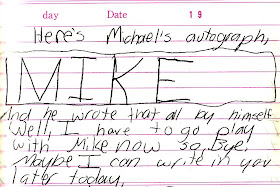 day Date 19
Here's Michael's autograph,
MIKE
And he wrote that all by himself
Well, I have to go play
with Mike now so, Bye!
Maybe I can write in you
later today.